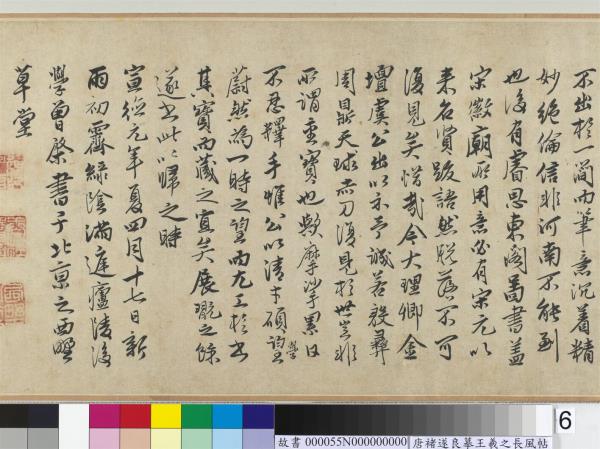 不出於一簡而筆意沉着精
妙絕倫信非河南不能到
也後有睿思東閣啚書蓋
宋徽廟所用意必有宋元以
來名賢跋語然脫落不可
復見矣惜哉今大理卿金
壇虞公出以示予誠若殷彝
周鼎天球赤刀復見於世豈非
所謂重寶也歟摩挲累日
不忍釋手惟公以清才碩學
蔚然為一時之望而尤工於書
其寶而藏之宜矣展翫之餘
遂書此以歸之時
宣德元年夏四月十七日新
雨初霽綠陰滿庭廬陵後
學曾棨書于北京之西墅
草堂
6
故書 000055N000000000 唐褚遂良摹王羲之長風帖